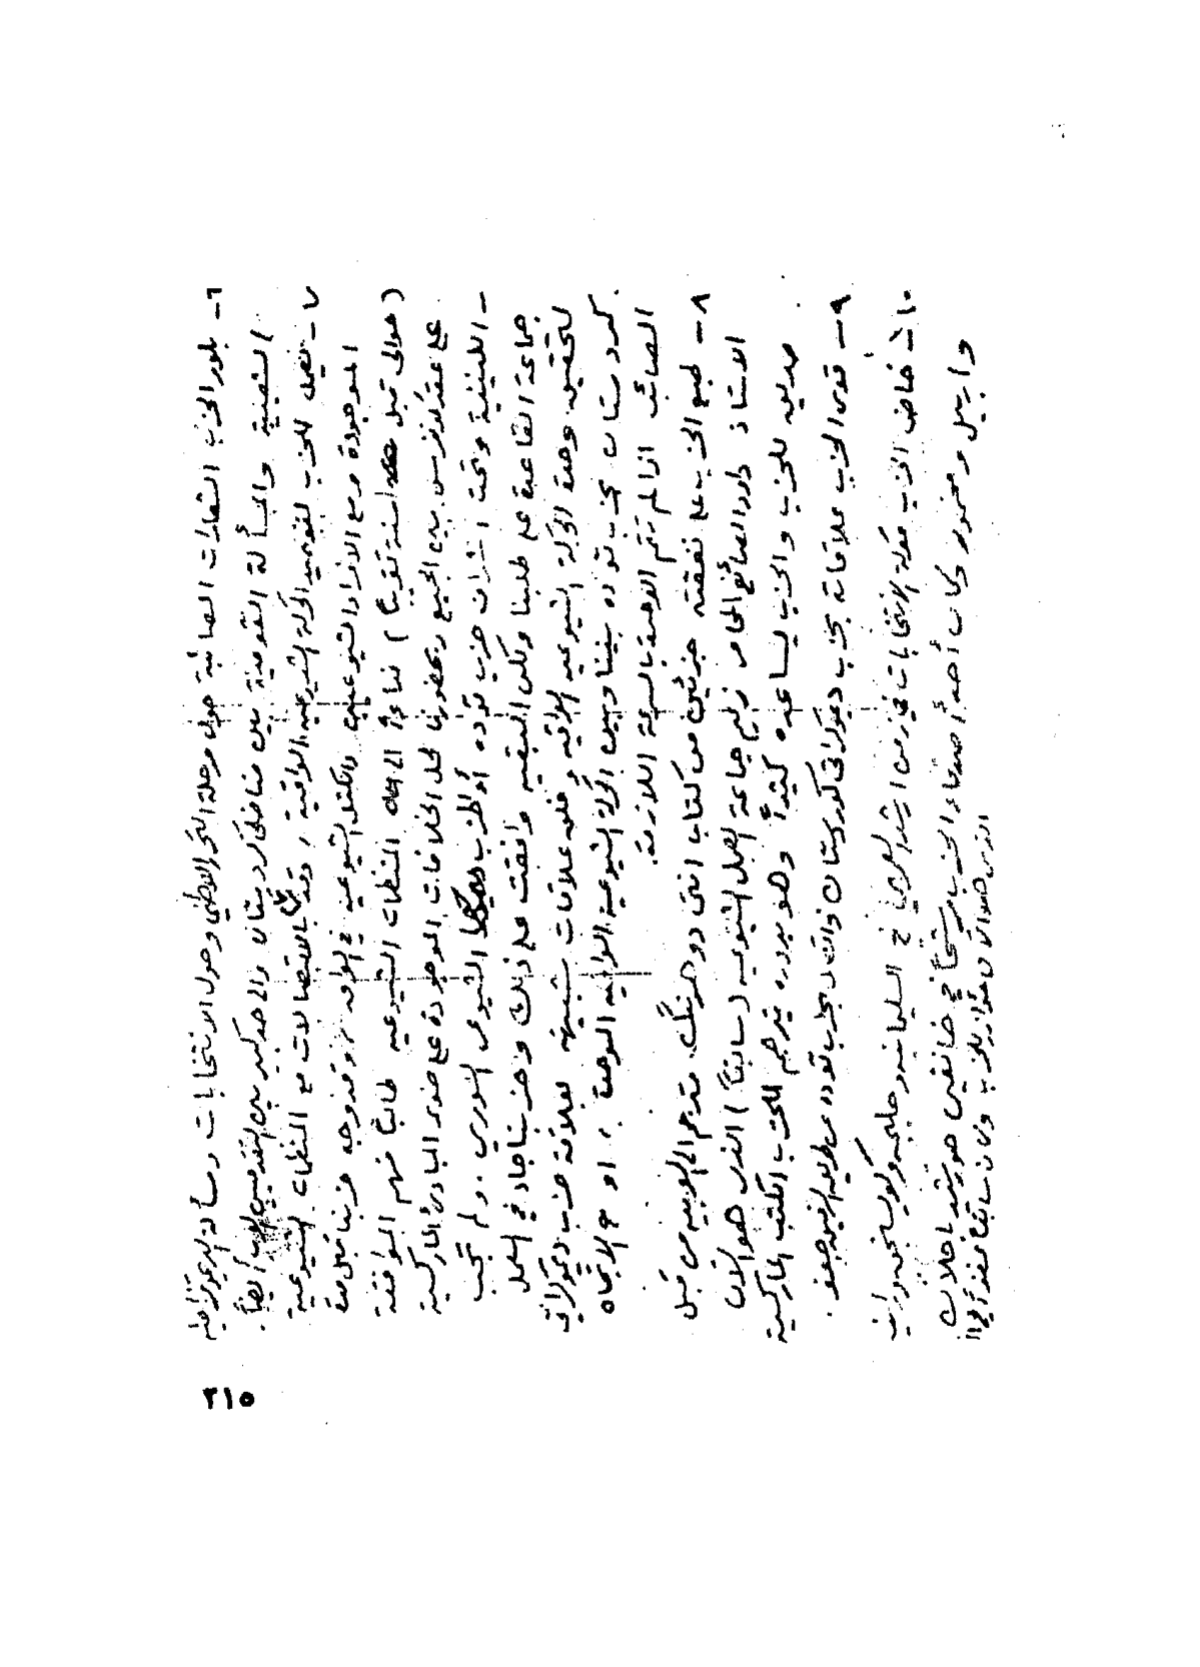 ٦- بلور الحزب الشعارات الصائبة حول مرحلة التحرر الوطني وحول الانتخابات ومسألة الديموقراطية
الشعبية والمسألة القومية بين مناضلي كردستان والى حد كبير بين التقدميين العرب أيضاً.
٧- يعمل الحزب لتوحيد الحركة الشيوعية العراقية، وقد بدأ بالاتصالات مع المنظمات الشيوعية
الموجودة ومع الافراد الشيوعيين والكتل الشيوعية في العراق. وقد وجه حزبنا قبل مدة
(حوالي قبل سنة تقريباً) نداءً الى المنظمات الشيوعية طالباً منهم الموافقة
على عقد كونفرنس بين الجميع وبحضورنا لحل الخلافات الموجودة على ضوء المبادئ الماركسية
- اللينينية وتحت اشراف حزب توده أو الحزب الشيوعي السوري. ولم تجب
جماعة القاعدة على طلبنا ولكن البقية وافقت على ذلك وحزبنا جاد في العمل
لتحقيق وحدة الحركة الشيوعية العراقية وخلق علاقات شبيهة بعلاقة حزب ديموكراتي
كردستان بحزب توده بيننا وبين الحركة الشيوعية العراقية الموحدة، او مع الاتجاه
الصائب اذا لم تتم الوحدة بالسرعة اللازمة.
٨- طبع الحزب على نفقته جزئين من كتاب انتي دوهرنك مترجم الى العربية من قبل
الاستاذ داود الصائغ المحامي زعيم جماعة العمل الشيوعية (سابقاً) الذي هو الآن
صديق للحزب والحزب يساعده كثيراً وهو بدوره يترجم للحزب الكتب الماركسية
٩- قوى الحزب علاقاته بحزب ديموكراتي كوردستان واتصل بحزب توده عن طريق الرفيق جعفر.
١٠- خاض الحزب معركة الانتخابات في زمن ارشد العمري في السليمانية وحلبجة وكويسنجق ورانية
واربيل ومخمور وكان أحد أصدقاء الحزب مرشحاً في خانقين
الذي هو الآن عضو في الحزب
٢١٥